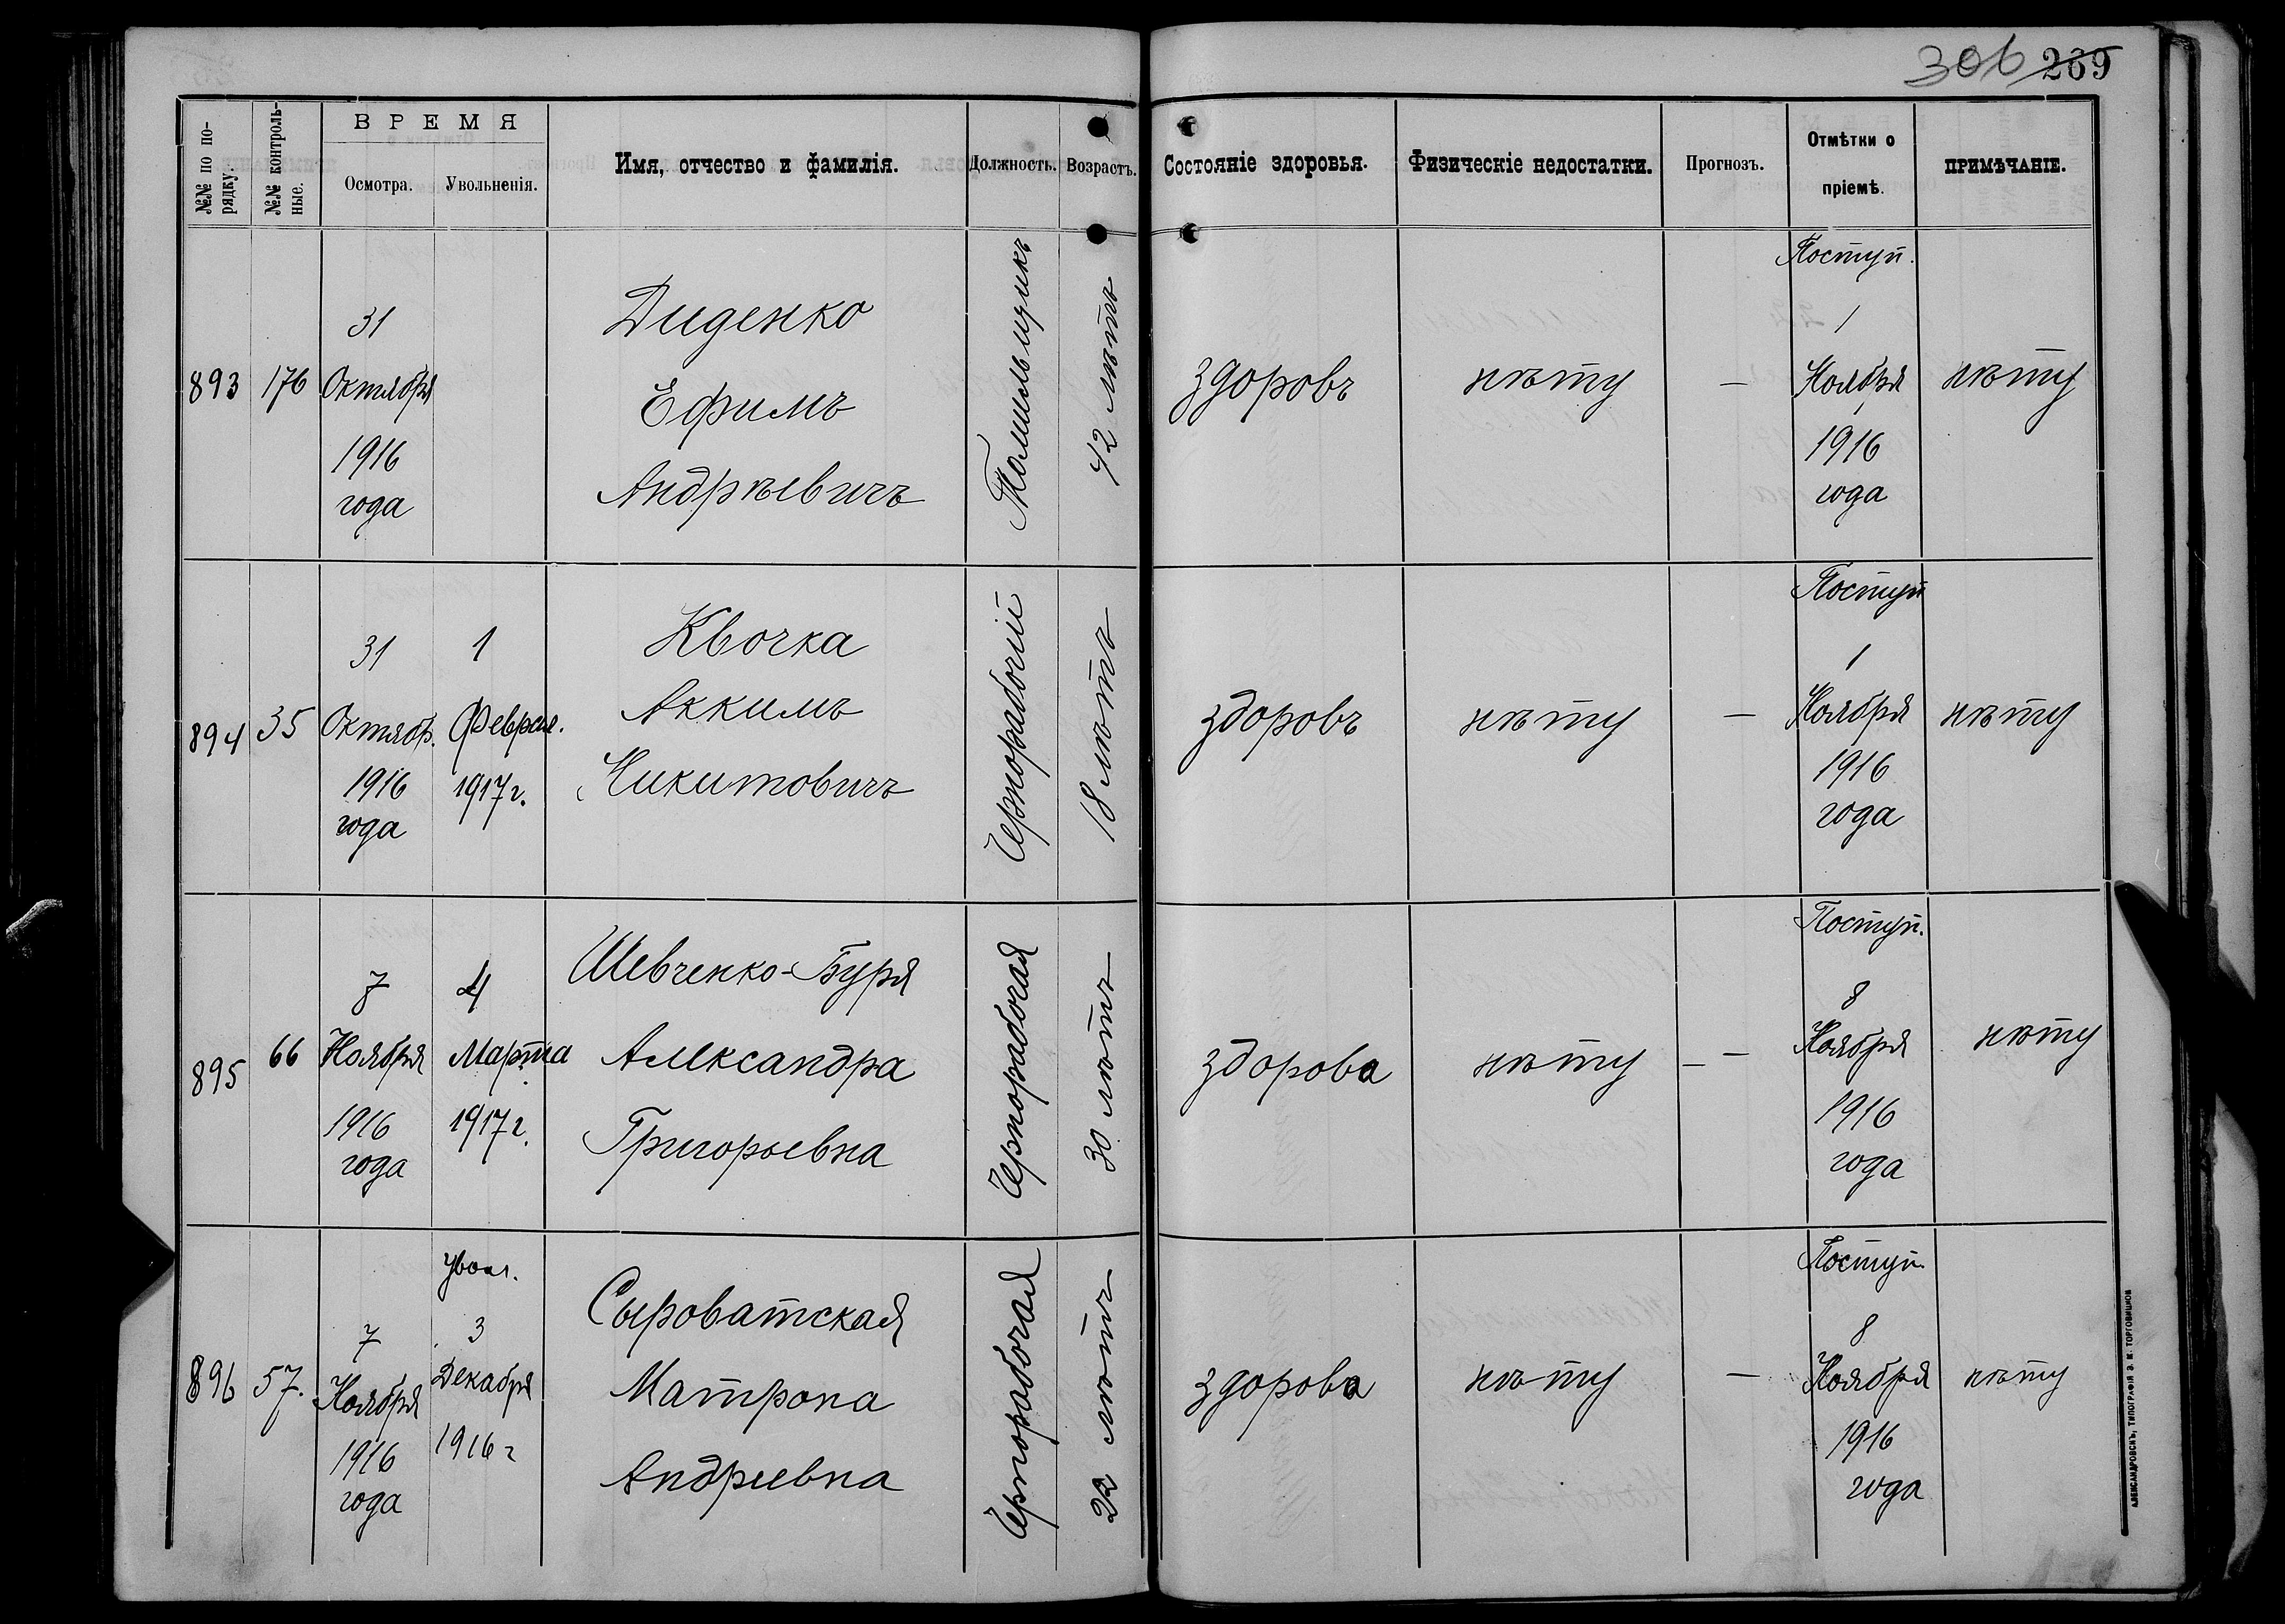 306 269
№№ по по-
рядку.
№№ контроль-
ные.
ВРЕМЯ
Осмотра.
Увольненія.
Имя, отчество и фамилія.
Должность.
Возрастъ.
Состояніе здоровья.
Физическіе недостатки.
Прогнозъ.
Отмѣтки о
пріемѣ.
ПРИМѢЧАНІЕ.
893
176
31
Октября
1916
года
Диденко
Ефимъ
Андрѣевичъ
42 лѣтъ
здоровъ
нѣту
—
Поступ.
1
Ноября
1916
года
нѣту
894
35
31
Октябр.
1916
года
1
Феврал.
1917 г.
Квочка
Аккимъ
Никитовичъ
Чернорабочій
18 лѣтъ
здоровъ
нѣту
—
Поступ
1
Ноября
1916
года
нѣту
895
66
7
Ноября
1916
года
4
Марта
1917 г.
Шевченко-Буря
Александра
Григорьевна
Чернорабочая
30 лѣтъ
здорова
нѣту
— —
Поступ.
8
Ноября
1916
года
нѣту
896
57.
7
Ноября
1916
года
Увол.
3
Декабря
1916 г
Сыроватская
Матрона
Андреевна
Чернорабочая
22 лѣтъ
здорова
нѣту
—
Поступ.
8
Ноября
1916
года
нѣту
АЛЕКСАНДРОВСКЪ, ТИПОГРАФІЯ Э. М. ТОРГОВИЦКОВ